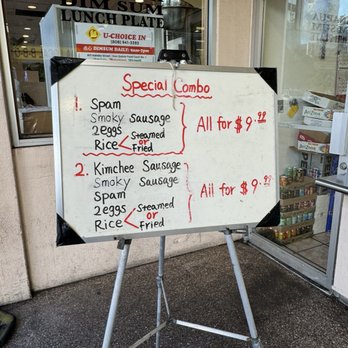 DIM SUM
LUNCH PLATE
U-CHOICE IN
DIMSUM DAILY!
Special Combo
1. Spam
Smoky Sausage
2eggs
Rice < Steamed or Fried
All for $9.99
2. Kimchee Sausage
Smoky Sausage
Spam
2eggs
Rice < Steamed or Fried
All for $9.99